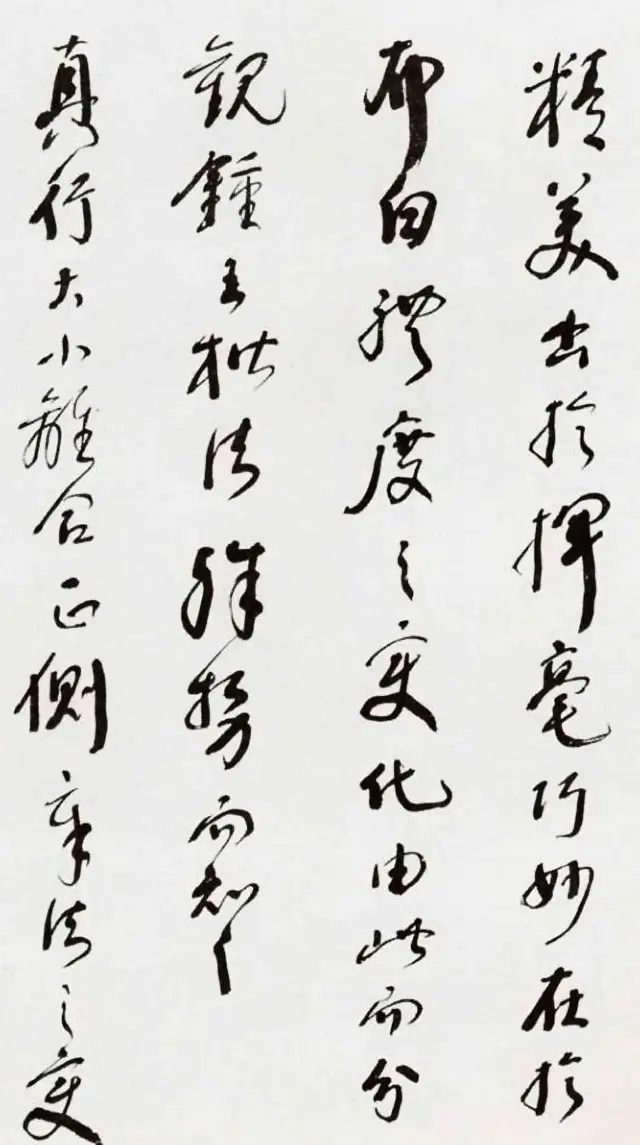 精美出於揮毫巧妙在於
布白體度之變化由此而分
觀鍾王楷法殊勢而知之
真行大小離合正側章法之變